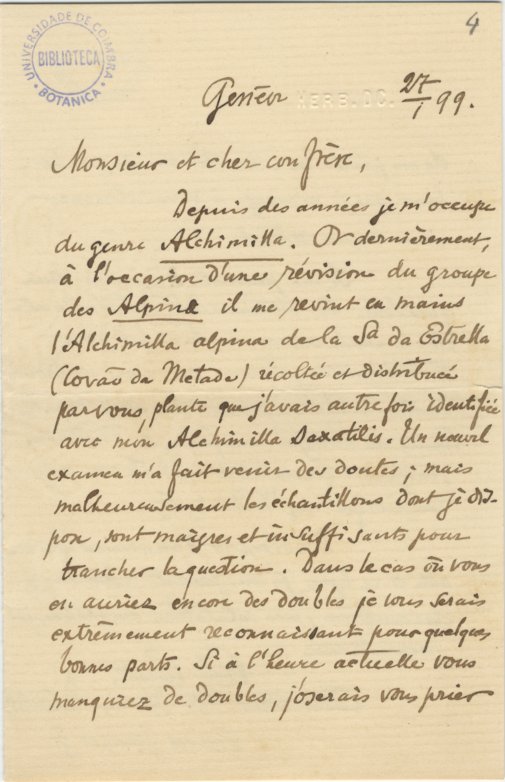 4
UNIVERSIDADE DE COIMBRA
BIBLIOTECA
BOTANICA
Genève HERB. DC. 27/1 99.
Monsieur et cher confrère,
Depuis des années je m'occupe
du genre Alchimilla. Or dernièrement,
à l'occasion d'une révision du groupe
des Alpinæ il me revint en mains
l'Alchimilla alpina de la Sa da Estrella
(Covão da Metade) récoltée et distribuée
par vous, plante que j'avais autrefois identifiée
avec mon Alchimilla saxatilis. Un nouvel
examen m'a fait venir des doutes ; mais
malheureusement les échantillons dont je dis-
pon, sont maigres et insuffisants pour
trancher la question. Dans le cas où vous
en auriez encore des doubles je vous serais
extrêmement reconnaissant pour quelques
bonnes parts. Si à l'heure actuelle vous
manquiez de doubles, j'oserais vous prier